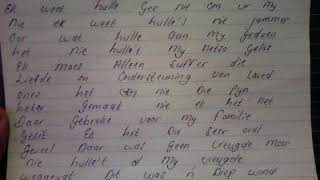 Ek weet hulle Gee nie om vir my
nie ek weet hulle's nie jammer
oor wat hulle aan my gedoen
het nie hulle't my netso gelos
Ek moes Alleen suffer die
Liefde en Ondersteuning van loved
ones het nie Die Pyn
beter gemaak nie ek het net
Daar Gebroke voor my Familie
Gesit Ek het Die seer oud
Gevoel Daar was Geen vreugde meer
nie hulle't al my vreugde
weggevat Dit was 'n Diep wond